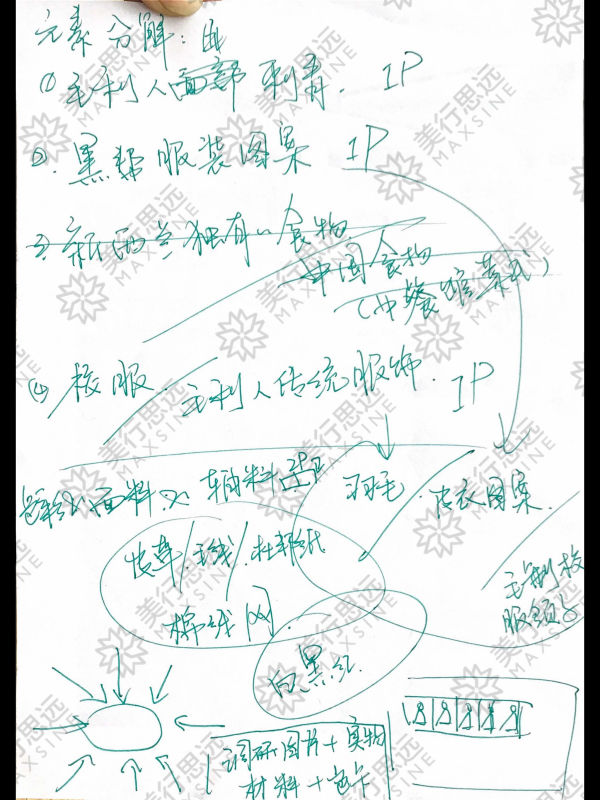 元素分解:
① 毛利人面部刺青. IP
②. 黑帮服装图案 IP
③ 新西兰独有的食物
中国食物
(中餐馆菜式)
④ 校服.
毛利人传统服饰. IP
面料. 辅料
羽毛. 皮衣图案.
皮革/毛线/杜邦纸
棉线 网.
毛利校
服
白黑红
调研图片+实物
材料+色卡
美行思远
MAXSINE